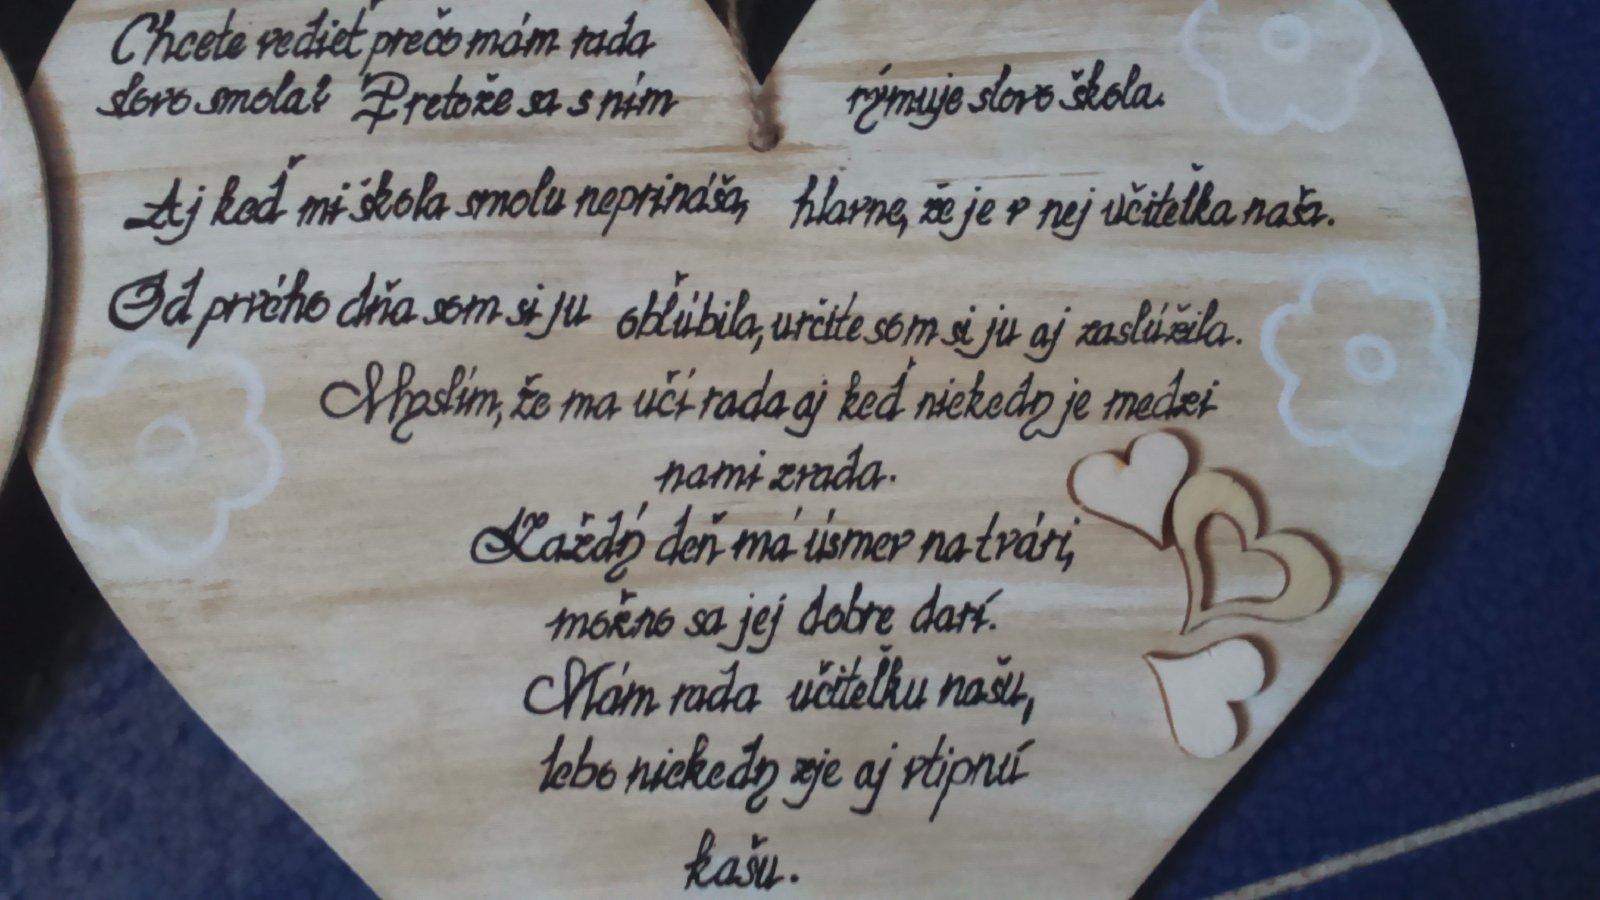 Chcete vedieť prečo mám rada
slovo smola? Pretože sa s ním rýmuje slovo škola.
Aj keď mi škola smolu neprináša, hlavne, že je v nej učiteľka naša.
Od prvého dňa som si ju obľúbila, určite som si ju aj zaslúžila.
Myslím, že ma učí rada aj keď niekedy je medzi
nami zrada.
Každý deň má úsmev na tvári,
možno sa jej dobre darí.
Mám rada učiteľku našu,
lebo niekedy zje aj vtipnú
kašu.